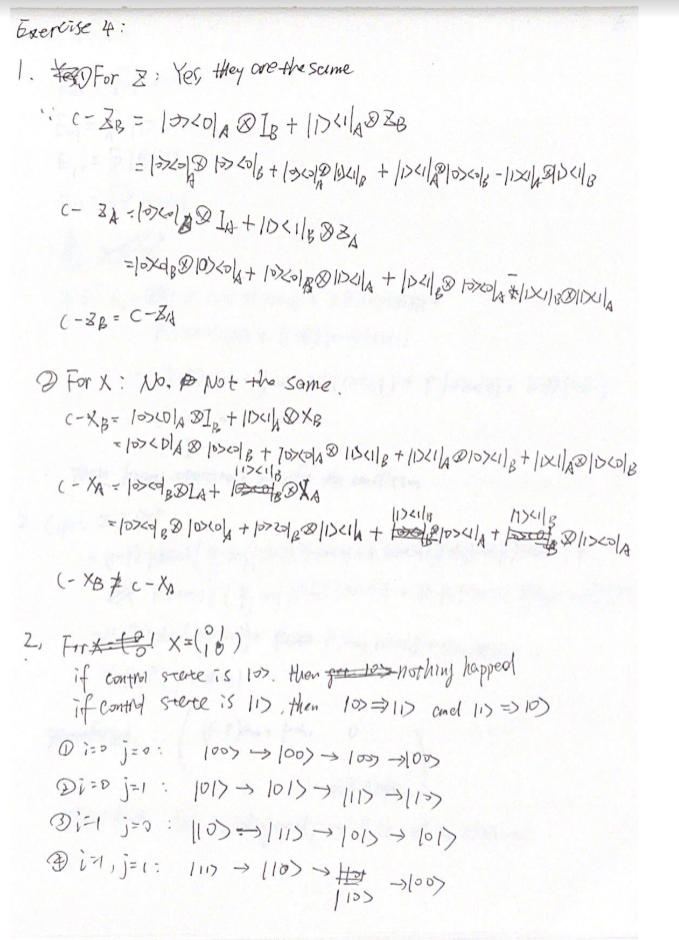 Exercise 4:
1. ① For Z: Yes, they are the same
∵ C-Z_B = |0><0|_A ⊗ I_B + |1><1|_A ⊗ Z_B
= |0><0|_A ⊗ |0><0|_B + |0><0|_A ⊗ |1><1|_B + |1><1|_A ⊗ |0><0|_B - |1><1|_A ⊗ |1><1|_B
C-Z_A = |0><0|_B ⊗ I_A + |1><1|_B ⊗ Z_A
= |0><0|_B ⊗ |0><0|_A + |0><0|_B ⊗ |1><1|_A + |1><1|_B ⊗ |0><0|_A - |1><1|_B ⊗ |1><1|_A
C-Z_B = C-Z_A
② For X: No. Not the same.
C-X_B = |0><0|_A ⊗ I_B + |1><1|_A ⊗ X_B
= |0><0|_A ⊗ |0><0|_B + |0><0|_A ⊗ |1><1|_B + |1><1|_A ⊗ |0><1|_B + |1><1|_A ⊗ |1><0|_B
C-X_A = |0><0|_B ⊗ I_A + |1><1|_B ⊗ X_A
= |0><0|_B ⊗ |0><0|_A + |0><0|_B ⊗ |1><1|_A + |1><1|_B ⊗ |0><1|_A + |1><1|_B ⊗ |1><0|_A
C-X_B ≠ C-X_A
2. For X=(0 1 1 0)
if control state is |0>. then nothing happed
if control state is |1>, then |0> ⇒ |1> and |1> ⇒ |0>
① i=0 j=0: |00> → |00> → |00> → |00>
② i=0 j=1: |01> → |01> → |11> → |10>
③ i=1 j=0: |10> → |11> → |01> → |01>
④ i=1, j=1: |11> → |10> → |10> → |00>